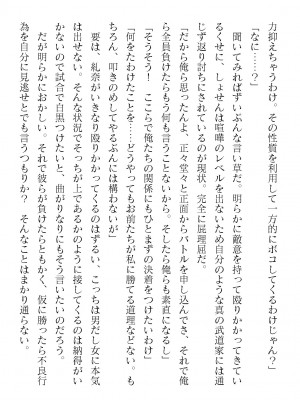 力抑えちゃうわけ。その性質を利用して一方的にボコしてくるわけじゃん？」
「なに……？」
聞いてみればずいぶんな言い草だ。明らかに敵意を持って殴りかかってきてい
るくせに、しょせんは喧嘩のレベルを出ないため自分のような真の武道家には通
じず返り討ちにされているのが現状。完全に屁理屈だ。
「だから俺ら思ったんよ、正々堂々と正面からバトルを申し込んでさ、それで俺
ら全員負けたらもう何も言うことないから。そしたら俺らも素直になるし」
「そうそう！　ここらで俺たちの関係にもひとまずの決着をつけたいわけ」
「何をたわけたことを……どうやってもお前たちが私に勝てる道理などない。も
ちろん、叩きのめしてやるぶんには構わないが」
要は、紮奈がいきなり殴りかかってくるのはずるい、こっちは男だし女に本気
は出せない。そんな状況でそっちが上であるかのように接してくるのは納得がい
かないので試合で白黒つけたいと、曲がりなりにもそう言いたいのだろう。
だが明らかにおかしい。それで彼が負けたらともかく、仮に勝ったら不良行
為を自分に見逃せとでも言うつもりか？　そんなことはまかり通らない。